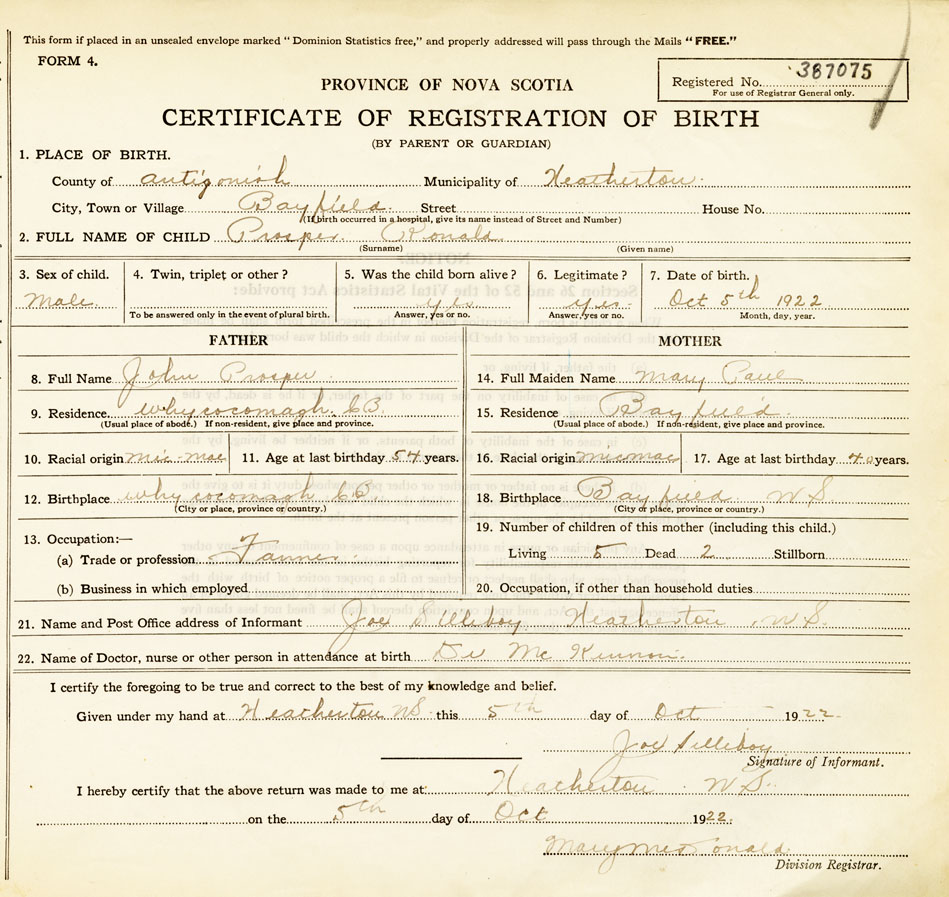 This form if placed in an unsealed envelope marked "Dominion Statistics free," and properly addressed will pass through the Mails "FREE."
FORM 4.
Registered No. 387075
For use of Registrar General only.
PROVINCE OF NOVA SCOTIA
CERTIFICATE OF REGISTRATION OF BIRTH
(BY PARENT OR GUARDIAN)
1. PLACE OF BIRTH.
County of antigonish Municipality of Heatherton
City, Town or Village Bayfield Street House No.
(If birth occurred in a hospital, give its name instead of Street and Number)
2. FULL NAME OF CHILD Prosper Ronald
(Surname) (Given name)
3. Sex of child. 4. Twin, triplet or other? 5. Was the child born alive? 6. Legitimate? 7. Date of birth.
Male yes yes Oct 5th 1922
To be answered only in the event of plural birth. Answer, yes or no. Answer, yes or no. Month, day, year.
FATHER MOTHER
8. Full Name John Prosper 14. Full Maiden Name Mary Paul
9. Residence whycocomagh CB 15. Residence Bayfield
(Usual place of abode.) If non-resident, give place and province. (Usual place of abode.) If non-resident, give place and province.
10. Racial origin Mic-Mac 11. Age at last birthday 54 years. 16. Racial origin micmac 17. Age at last birthday 40 years.
12. Birthplace whycocomagh CB 18. Birthplace Bayfield NS
(City or place, province or country.) (City or place, province or country.)
13. Occupation:— 19. Number of children of this mother (including this child.)
(a) Trade or profession Farmer Living 5 Dead 2 Stillborn
(b) Business in which employed 20. Occupation, if other than household duties
21. Name and Post Office address of Informant Joe Silliboy Heatherton NS
22. Name of Doctor, nurse or other person in attendance at birth Dr McKinnon
I certify the foregoing to be true and correct to the best of my knowledge and belief.
Given under my hand at Heatherton NS this 5th day of Oct 1922
Joe Silliboy
Signature of Informant.
I hereby certify that the above return was made to me at Heatherton NS
on the 5th day of Oct 1922
Division Registrar.